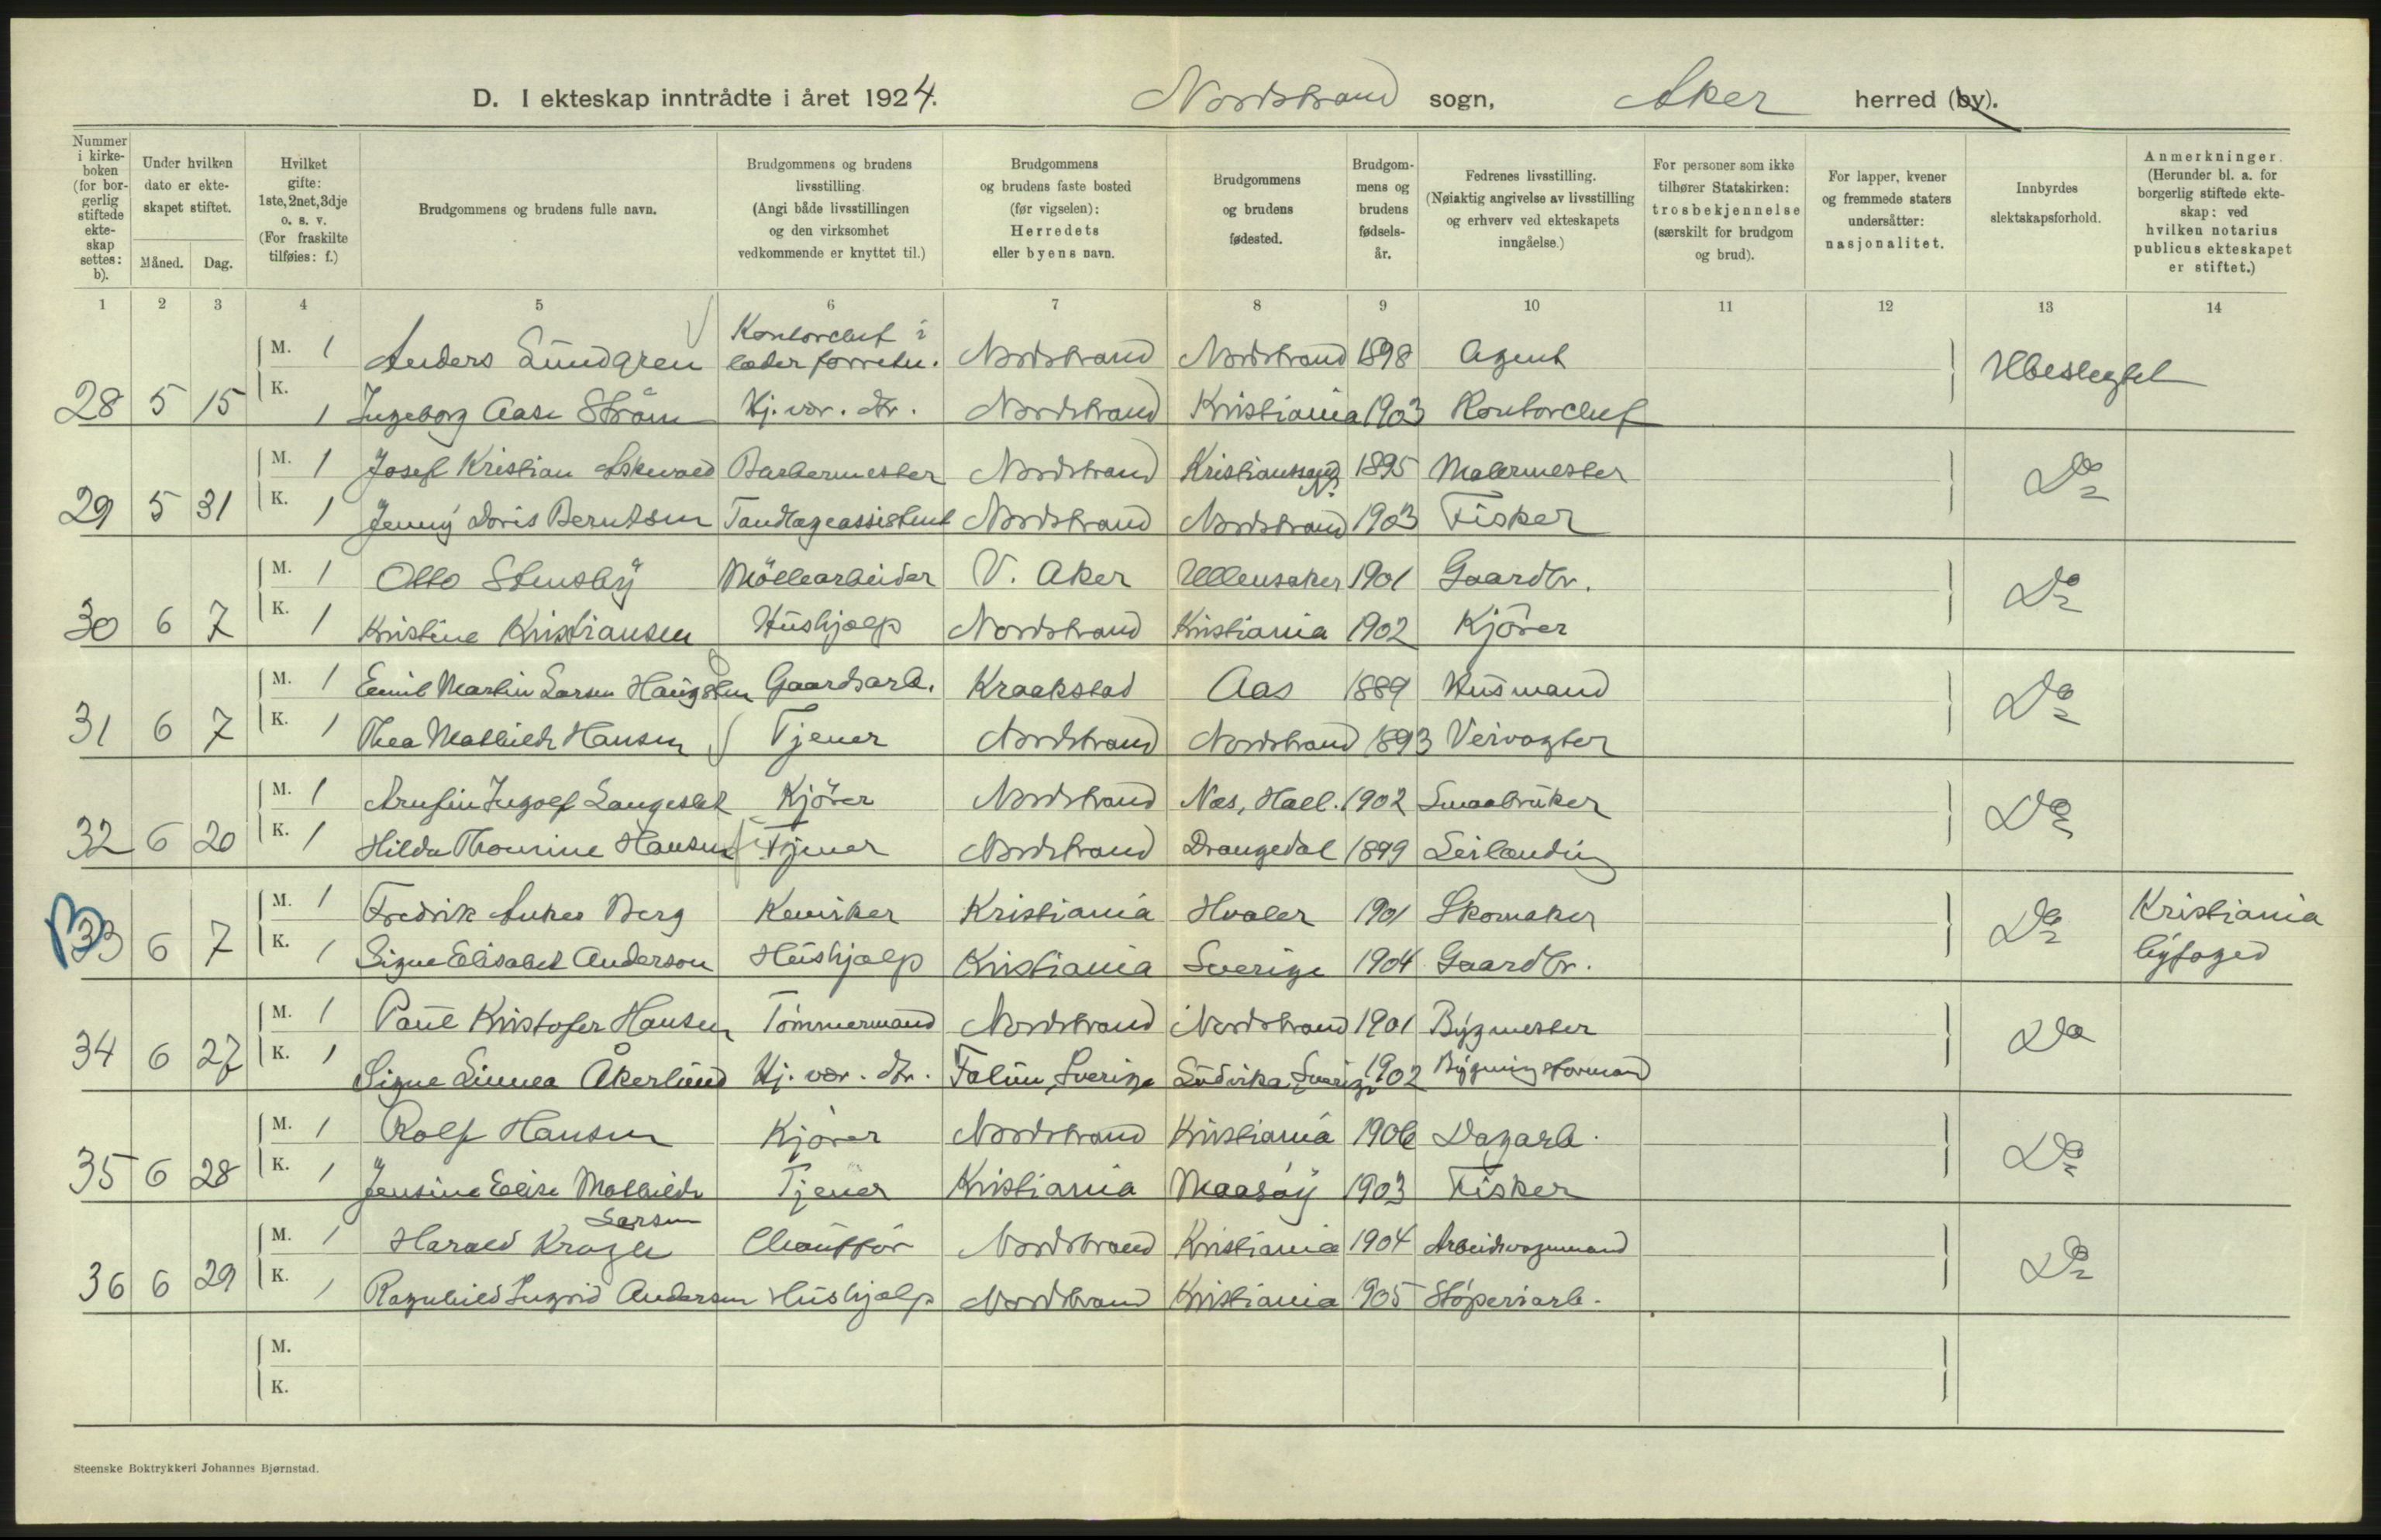 D. I ekteskap inntrådte i året 1924. Nordstrand sogn, Aker herred (by).
Nummer i kirkeboken (for borgerlig stiftede ekteskap settes: b). Under hvilken dato er ekteskapet stiftet. Måned. Dag. Hvilket gifte: 1ste, 2net, 3dje o. s. v. (For fraskilte tilføies: f.) Brudgommens og brudens fulle navn. Brudgommens og brudens livsstilling. (Angi både livsstillingen og den virksomhet vedkommende er knyttet til.) Brudgommens og brudens faste bosted (før vigselen): Herredets eller byens navn. Brudgommens og brudens fødested. Brudgommens og brudens fødselsår. Fedrenes livsstilling. (Nøiaktig angivelse av livsstilling og erhverv ved ekteskapets inngåelse.) For personer som ikke tilhører Statskirken: trosbekjennelse (særskilt for brudgom og brud). For lapper, kvener og fremmede staters undersåtter: nasjonalitet. Innbyrdes slektskapsforhold. Anmerkninger. (Herunder bl. a. for borgerlig stiftede ekteskap: ved hvilken notarius publicus ekteskapet er stiftet.)
1 2 3 4 5 6 7 8 9 10 11 12 13 14
M. 1 Anders Lundgren Kontorchef i læderforretn. Nordstrand Nordstrand 1898 Agent Ubeslegtet
28 5 15 K. 1 Ingeborg Aase Strøm Hj. vær. dtr. Nordstrand Kristiania 1903 Kontorchef
M. 1 Josef Kristian Barbermester Nordstrand Kristianssand N. 1895 Malermester Do
29 5 31 K. 1 Jenny Doris Berntsen Tandlægeassistent Nordstrand Nordstrand 1903 Fisker
M. 1 Otto Stensby Möllearbeider V. Aker Ullensaker 1901 Gaardbr. Do
30 6 7 K. 1 Kristine Kristiansen Hushjælp Nordstrand Kristiania 1902 Kjörer
M. 1 Emil Martin Larsen Haugsten Gaardsarb. Kraakstad Aas 1889 Husmand Do
31 6 7 K. 1 Thea Mathilde Hansen Tjener Nordstrand Nordstrand 1893 Veivogter
M. 1 Arnfin Ingolf Langeslet Kjörer Nordstrand Næs, Hall. 1902 Smaabruker Do
32 6 20 K. 1 Hilda Thomine Hansen Tjener Nordstrand Drangedal 1899 Leilænding
M. 1 Fredrik Anker Berg Kemiker Kristiania Hvaler 1901 Skomaker Do Kristiania
B 33 6 7 K. 1 Signe Elisabet Anderson Hushjælp Kristiania Sverige 1904 Gaardbr. byfoged
M. 1 Paul Kristofer Hansen Tömmermand Nordstrand Nordstrand 1901 Bygmester Do
34 6 27 K. 1 Signe Linnea Åkerlund Hj. vær. dtr. Falun, Sverige Ludvika, Sverige 1902 Bygningsformand
M. 1 Rolf Hansen Kjörer Nordstrand Kristiania 1906 Dagarb. Do
35 6 28 K. 1 Jensine Elise Mathilde Larsen Tjener Kristiania Maasöy 1903 Fisker
M. 1 Harald Kragh Chauffør Nordstrand Kristiania 1904 Arbeidsvognmand Do
36 6 29 K. 1 Ragnhild Ingrid Andersen Hushjælp Nordstrand Kristiania 1905 Støperiarb.
M.
K.
Steenske Boktrykkeri Johannes Bjørnstad.